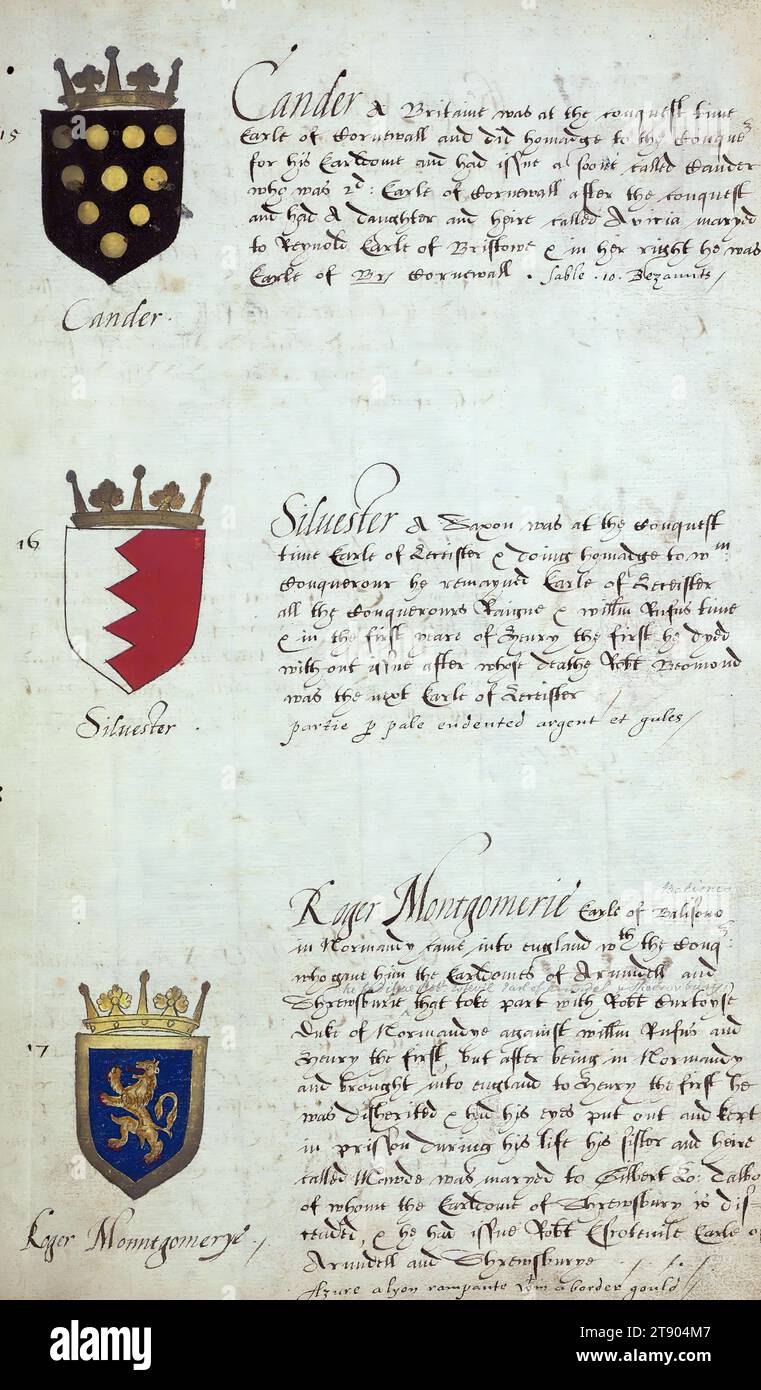 15
Cander A Britaine was at the conquest time
Earle of Cornewall and did homadge to the Conque
for his Earldome and had issue a soone called Cander
who was 2d: Earle of Cornewall after the conquest
and had A daughter and heire called Avicia maryed
to Reynold Earle of Bristowe & in her right he was
Earle of Br Cornewall . Sable .10. Bezannts /
Cander.
16
Siluester A Saxon was at the Conquest
time Earle of Leceister & doing homadge to wm
Conquerour he remayned Earle of Leceister
all the Conquerours Raigne & willm Rufus time
& in the first yeare of Henry the first he dyed
without issue after whose deathe Robt Beomond
was the next Earle of Leceister /
partie p pale endented argent et gules /
Siluester .
17
Roger Montgomerie Earle of
in Normandy came into england wth the Conq
who gave him the Earldomes of Arundell and
Shrewsburie that toke part with Robt Curtoyse
Duke of Normandye against willm Rufus and
Henry the first, but after being in Normandy
and brought into england to Henry the first he
was disherited & had his eyes put out and kept
in prisson during his life his sister and heire
called Mawde was maryed to Gilbert Lo: Talbo
of whome the Earldome of Shrewsbury is dis=
cended, & he had issue Robt Earle o
Arundell and Shrewsburye
Azure a lyon rampante wtin a border gould /
Roger Monntgomerye . /
alamy
Image ID: 2T904M7
www.alamy.com